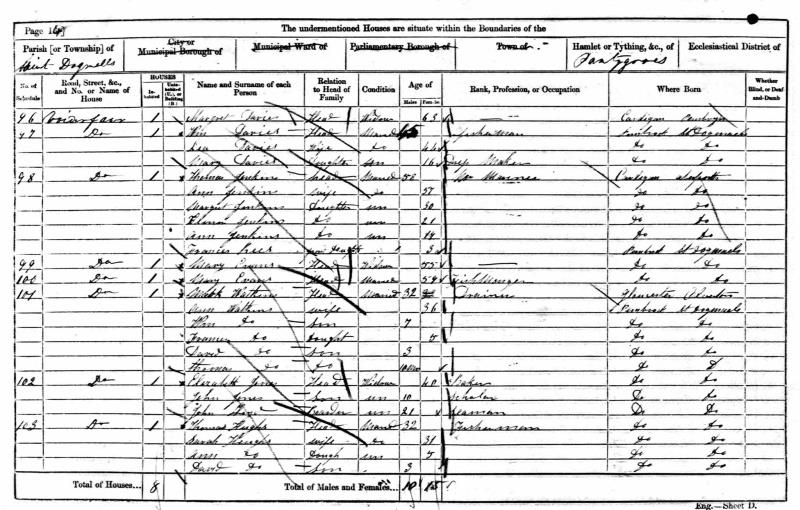 Page 14
The undermentioned Houses are situate within the Boundaries of the
Parish [or Township] of
City or Municipal Borough of
Municipal Ward of
Parliamentary Borough of
Town of
Hamlet or Tything, &c., of
Ecclesiastical District of
Dogmells
Pantygroves
No. of Schedule
Road, Street, &c., and No. or Name of House
HOUSES
Inhabited
Uninhabited (U.), or Building (B.)
Name and Surname of each Person
Relation to Head of Family
Condition
Age of
Males
Females
Rank, Profession, or Occupation
Where Born
Whether Blind, or Deaf-and-Dumb
96 1 Margret Davies Head Widow 63 Cardigan
97 Do 1 Wm Davies Head Married Fisherman St Dogmaels
Davies Wife do 44 do do
Mary Davies Daughter un 16 Maker do do
98 Do 1 Thomas Jenkins head Married 56 Cardigan
Ann Jenkin wife do 57 do do
Margret Jenkins Daughter un 30 do do
Jenkins do un 21 do do
Ann Jenkins do un 14 do do
Frances 3 St Dogmaels
99 Do 1 Mary Evans Head Widow 55 do do
100 Do 1 Mary Evans Head Married 59 Fish Monger do do
101 Do 1 Watkins Head Married 32 Drainer Gloucester
Ann Watkins wife 36 St Dogmaels
Wm do son 7 do do
Frances do Daught 5 do do
David do son 3 do do
Thomas do do 10 do
102 Do 1 Elizabeth Jones Head Widow 40 Baker do do
John Jones Son un 10 Scholar Do do
John un 21 Seaman Do do
103 Do 1 Thomas Hughs Head Married 32 Fisherman do do
Sarah Hughs wife do 31 do do
Ann do Daugh un 5 do do
David do Son 3 do do
Total of Houses... 8
Total of Males and Females... 10 15
Eng.—Sheet D.